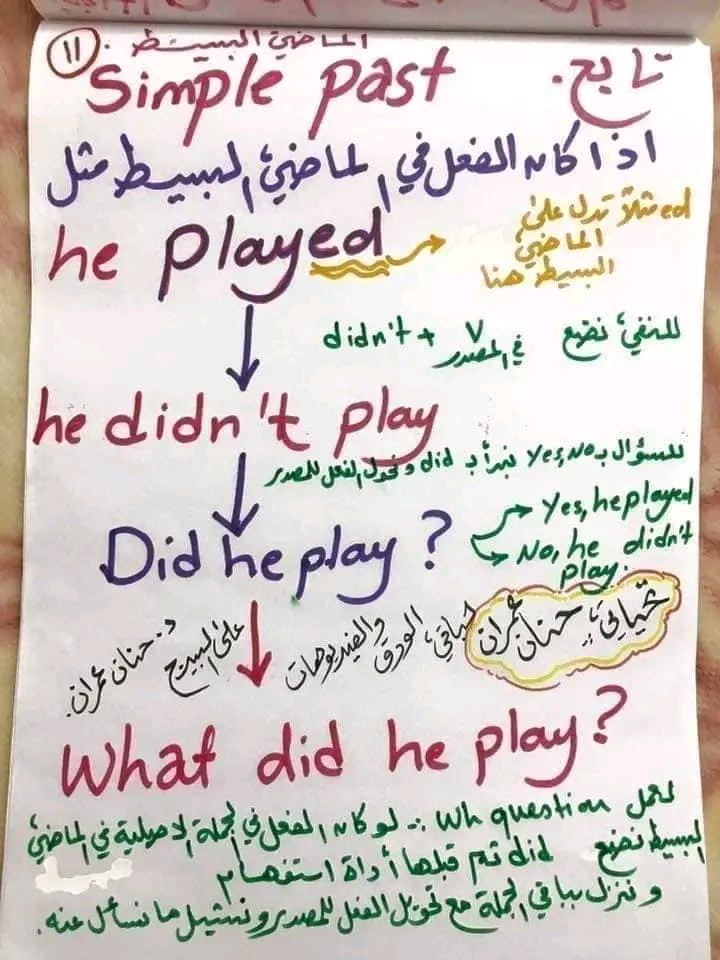 ١١
الماضي البسيط
Simple past
تابع.
اذا كان الفعل في الماضي البسيط مثل
he played
ed مثلاً تدل على
الماضي
البسيط هنا
للنفي نضع
didn't + V
في المصدر
he didn't play
للسؤال بـ Yes, No نبدأ بـ did ونحول الفعل للمصدر
Did he play?
Yes, he played
No, he didn't
play.
تحياتي
حنان عمران
باقي الورق والفيديوهات
على البيدج
د. حنان عمران.
What did he play?
لعمل Wh question :- لو كان الفعل في الجملة الاصلية في الماضي
البسيط نضع did ثم قبلها أداة استفهام
وننزل بباقي الجملة مع تحويل الفعل للمصدر ونشيل ما نسأل عنه.